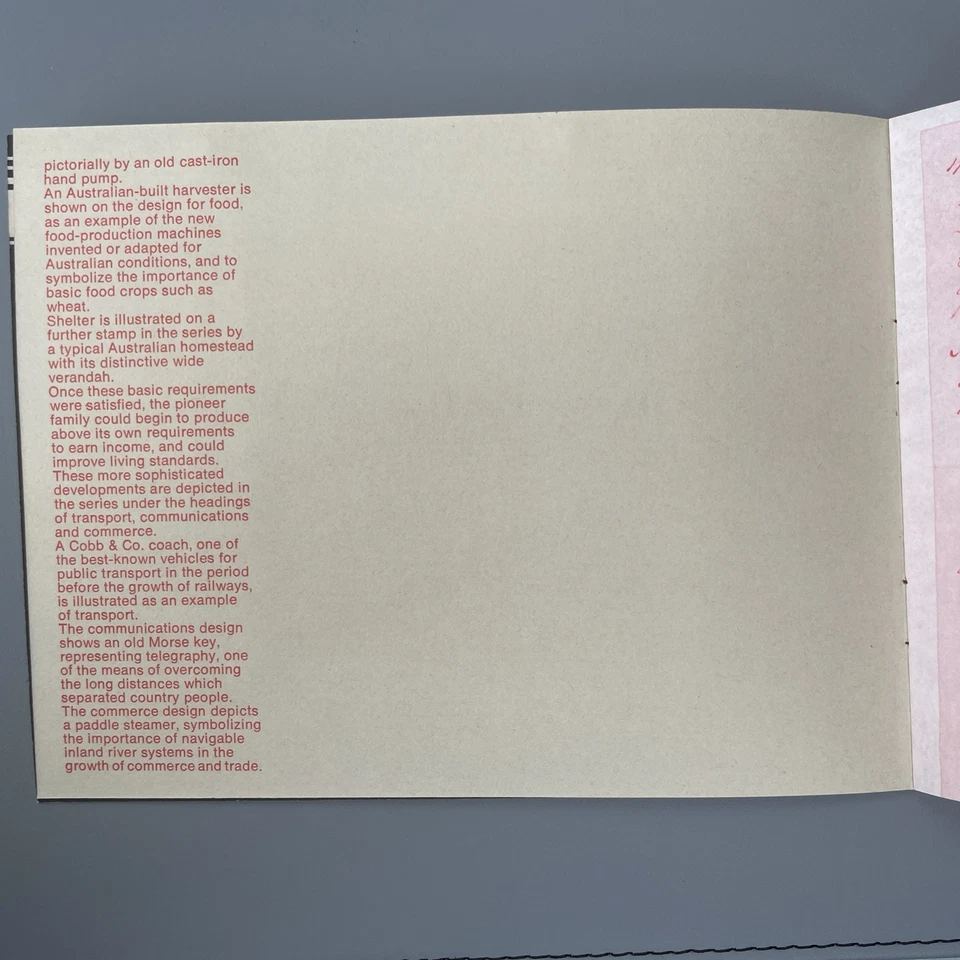 pictorially by an old cast-iron
hand pump.
An Australian-built harvester is
shown on the design for food,
as an example of the new
food-production machines
invented or adapted for
Australian conditions, and to
symbolize the importance of
basic food crops such as
wheat.
Shelter is illustrated on a
further stamp in the series by
a typical Australian homestead
with its distinctive wide
verandah.
Once these basic requirements
were satisfied, the pioneer
family could begin to produce
above its own requirements
to earn income, and could
improve living standards.
These more sophisticated
developments are depicted in
the series under the headings
of transport, communications
and commerce.
A Cobb & Co. coach, one of
the best-known vehicles for
public transport in the period
before the growth of railways,
is illustrated as an example
of transport.
The communications design
shows an old Morse key,
representing telegraphy, one
of the means of overcoming
the long distances which
separated country people.
The commerce design depicts
a paddle steamer, symbolizing
the importance of navigable
inland river systems in the
growth of commerce and trade.